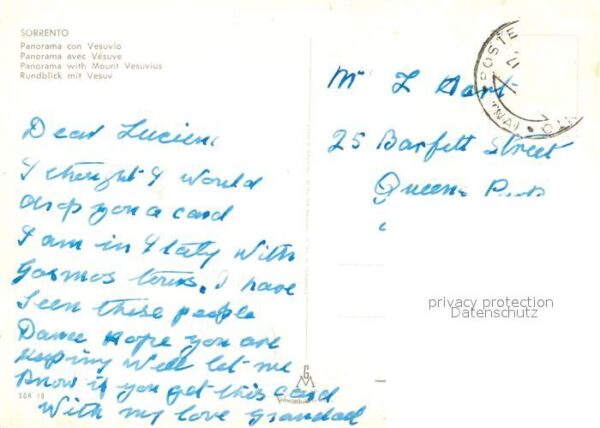 SORRENTO
Panorama con Vesuvio
Panorama avec Vésuve
Panorama with Mount Vesuvius
Rundblick mit Vesuv
Dear Lucien,
I thought I would
drop you a card
I am in Itaty with
Cosmos tours. I have
seen these people
Dance Hope you are
keeping Well let me
know if you get this card
With my love Grandad
SOR 10
POSTE
Mr L Hart
25 Barfett Street
Queens Park
privacy protection
Datenschutz